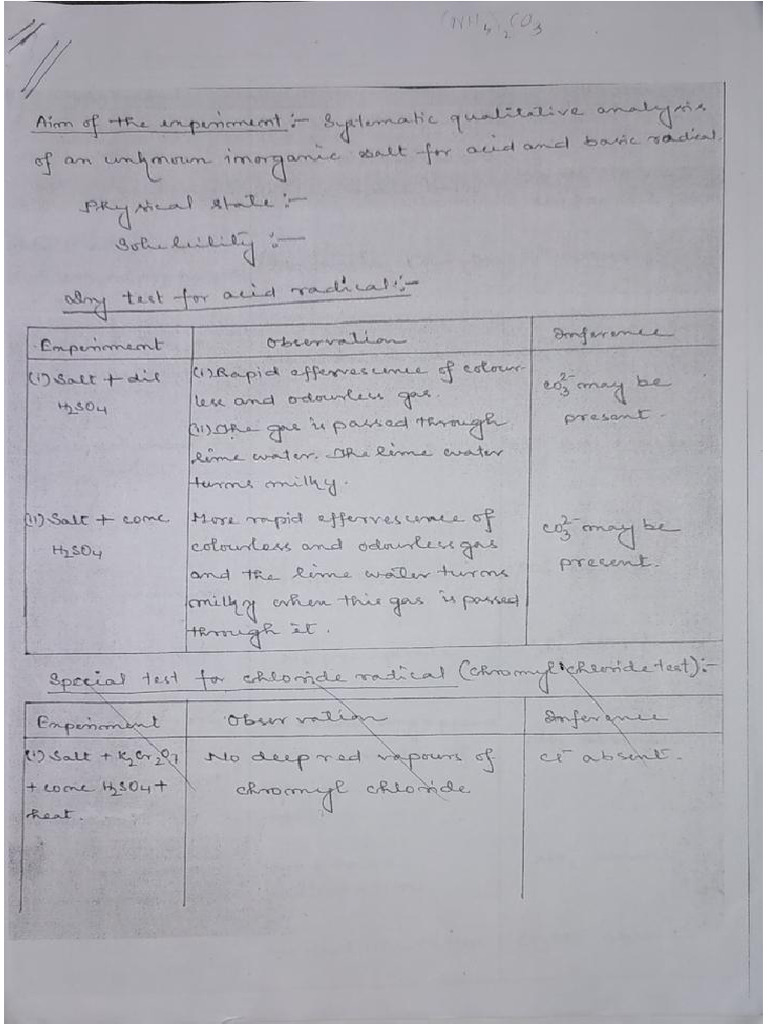 (NH4)2CO3
Aim of the experiment :- Systematic qualitative analysis
of an unknown inorganic salt for acid and basic radical.
Physical state :-
Solubility :-
Dry test for acid radical :-
Experiment Observation Inference
(i) Salt + dil (i) Rapid effervescence of colour- CO3^2- may be
H2SO4 less and odourless gas. present.
(ii) The gas is passed through
lime water. The lime water
turns milky.
(ii) Salt + conc More rapid effervescence of CO3^2- may be
H2SO4 colourless and odourless gas present.
and the lime water turns
milky when this gas is passed
through it.
Special test for chloride radical (chromyl chloride test) :-
Experiment Observation Inference
(i) Salt + K2Cr2O7 No deep red vapours of Cl- absent.
+ conc H2SO4 + chromyl chloride
heat.